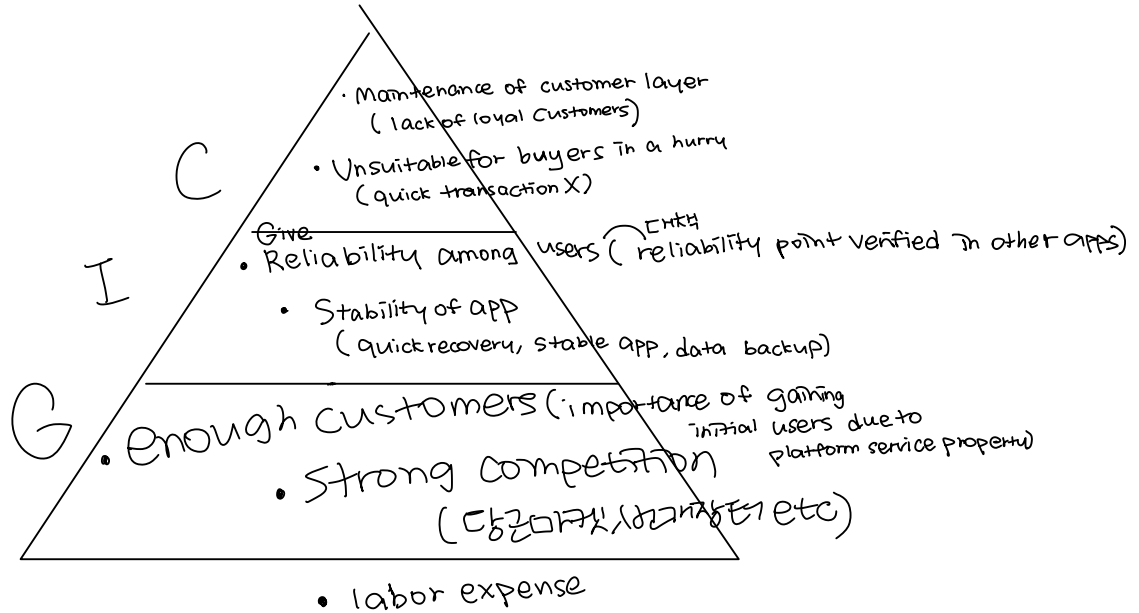 · Maintenance of customer layer
(lack of loyal customers)
C
• Unsuitable for buyers in a hurry
(quick transaction X)
Give
대책
I
• Reliability among users (reliability point verified in other apps)
• Stability of app
(quick recovery, stable app, data backup)
G
• enough customers (importance of gaining
initial users due to
platform service property)
• strong competition
(당근마켓, 번개장터 etc)
• labor expense